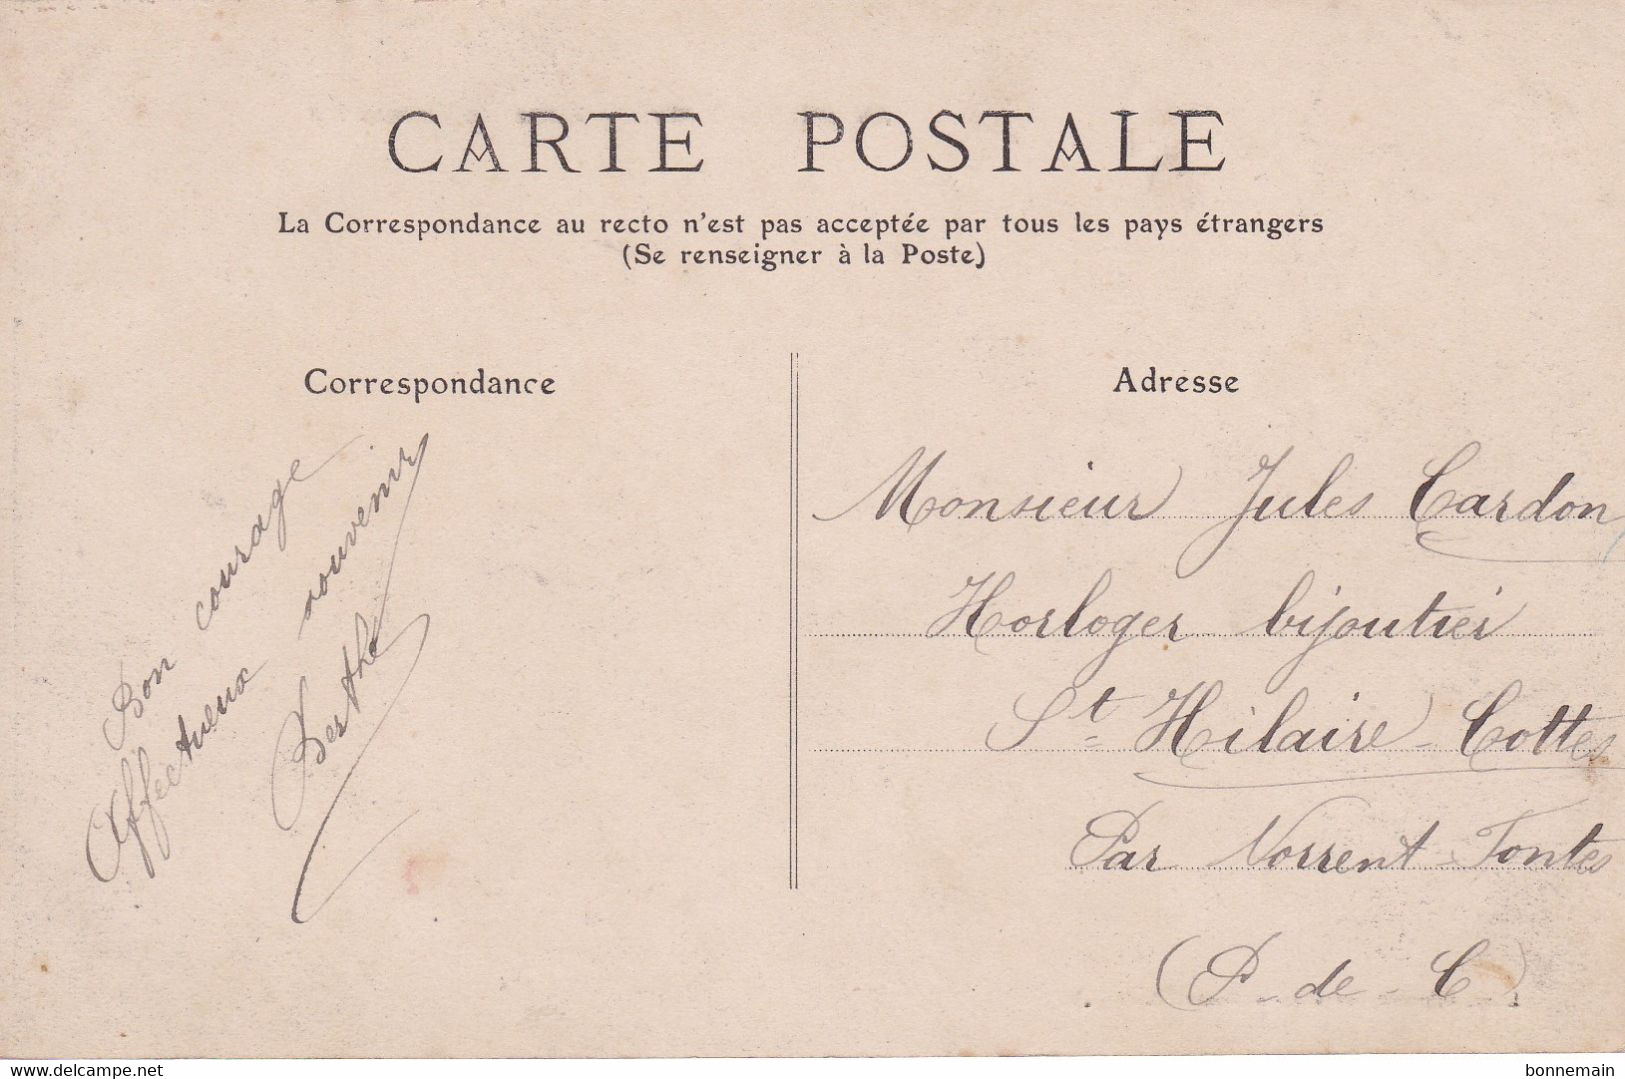 CARTE POSTALE
La Correspondance au recto n'est pas acceptée par tous les pays étrangers
(Se renseigner à la Poste)
Correspondance
Bon courage
Affectueux souvenir
Berthe
Adresse
Monsieur Jules Cardon
Horloger bijoutier
St Hilaire-Cottes
Par Norrent-Fontes
(P-de-C)
delcampe.net
bonnemain